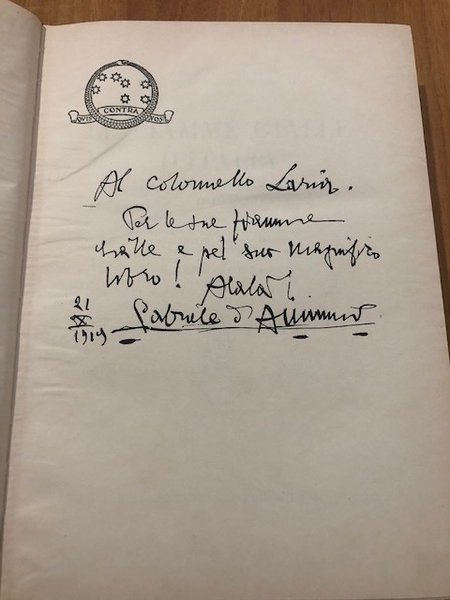 QVIS CONTRA NOS
Al colonnello Laria.
Per le sue fiamme
gialle e pel suo magnifico
libro! Alalà!
21
X
1919
Gabriele d'Annunzio